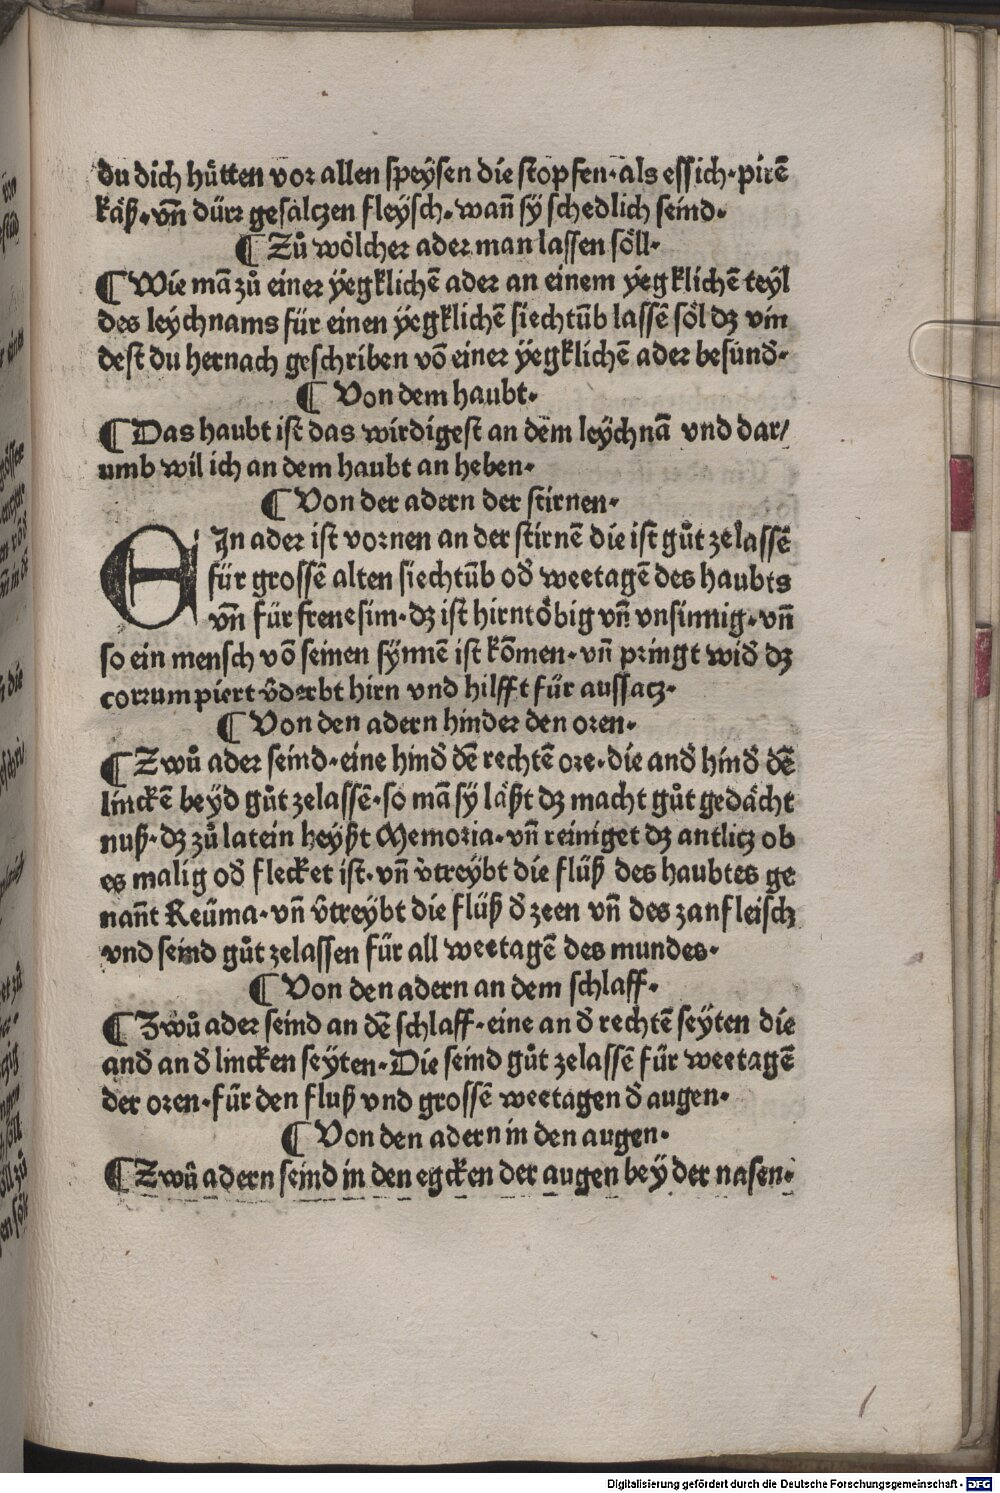 du dich hu̍tten vor allen speÿsen die stopfen·als essich·pirē
kåß·vn̄ dürr gesåltzen fleÿsch·wan̄ sÿ schedlich seind·
¶ Zů wölcher ader man lassen söll·
¶ Wie mā zů einer ÿegklichē ader an einem ÿegklichē teÿl
des leÿchnams für einen ÿegklichē siechtūb lassē söl dz vin
dest du hernach geschriben vō einer ÿegklichē ader besund̾·
¶ Von dem haubt·
¶ Das haubt ist das wirdigest an dem leÿchnā vnd dar/
umb wil ich an dem haubt an heben·
¶ Von der adern der stirnen·
EIn ader ist vornen an der stirnē die ist gůt zelassē
für grossē alten siechtūb od̾ weetagē des haubts
vn̄ für frenesim·dz ist hirntöbig vn̄ vnsinnig·vn̄
so ein mensch vō seinen sÿnnē ist kōmen·vn̄ pringt wid̾ dz
corrumpiert v̾derbt hirn vnd hilfft für aussatz·
¶ Von den adern hinder den oren·
¶ Zwů ader seind·eine hind̾ dē rechtē ore·die and̾ hind̾ dē
linckē beÿd gůt zelassē·so mā sÿ låßt dz macht gůt gedåcht
nuß·dz zů latein heÿßt Memoria·vn̄ reiniget dz antlitz ob
es malig od̾ flecket ist·vn̄ v̾treÿbt die flüß des haubtes ge
nan̄t Reüma·vn̄ v̾treÿbt die flüß d̾ zeen vn̄ des zanfleisch
vnd seind gůt zelassen für all weetagē des mundes·
¶ Von den adern an dem schlaff·
¶ Zwů ader seind an dē schlaff·eine an d̾ rechtē seÿten die
and̾ an d̾ lincken seÿten·Die seind gůt zelassē für weetagē
der oren·für den fluß vnd grossē weetagen d̾ augen·
¶ Von den adern in den augen·
¶ Zwů adern seind in den egcken der augen beÿ der nasen·
Digitalisierung gefördert durch die Deutsche Forschungsgemeinschaft - DFG